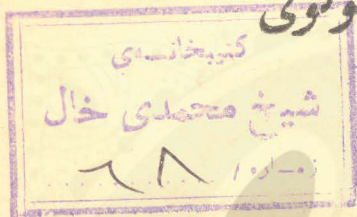 كتيبخانەی
شيخ محمدی خاڵ
ژمارە / ٦٨